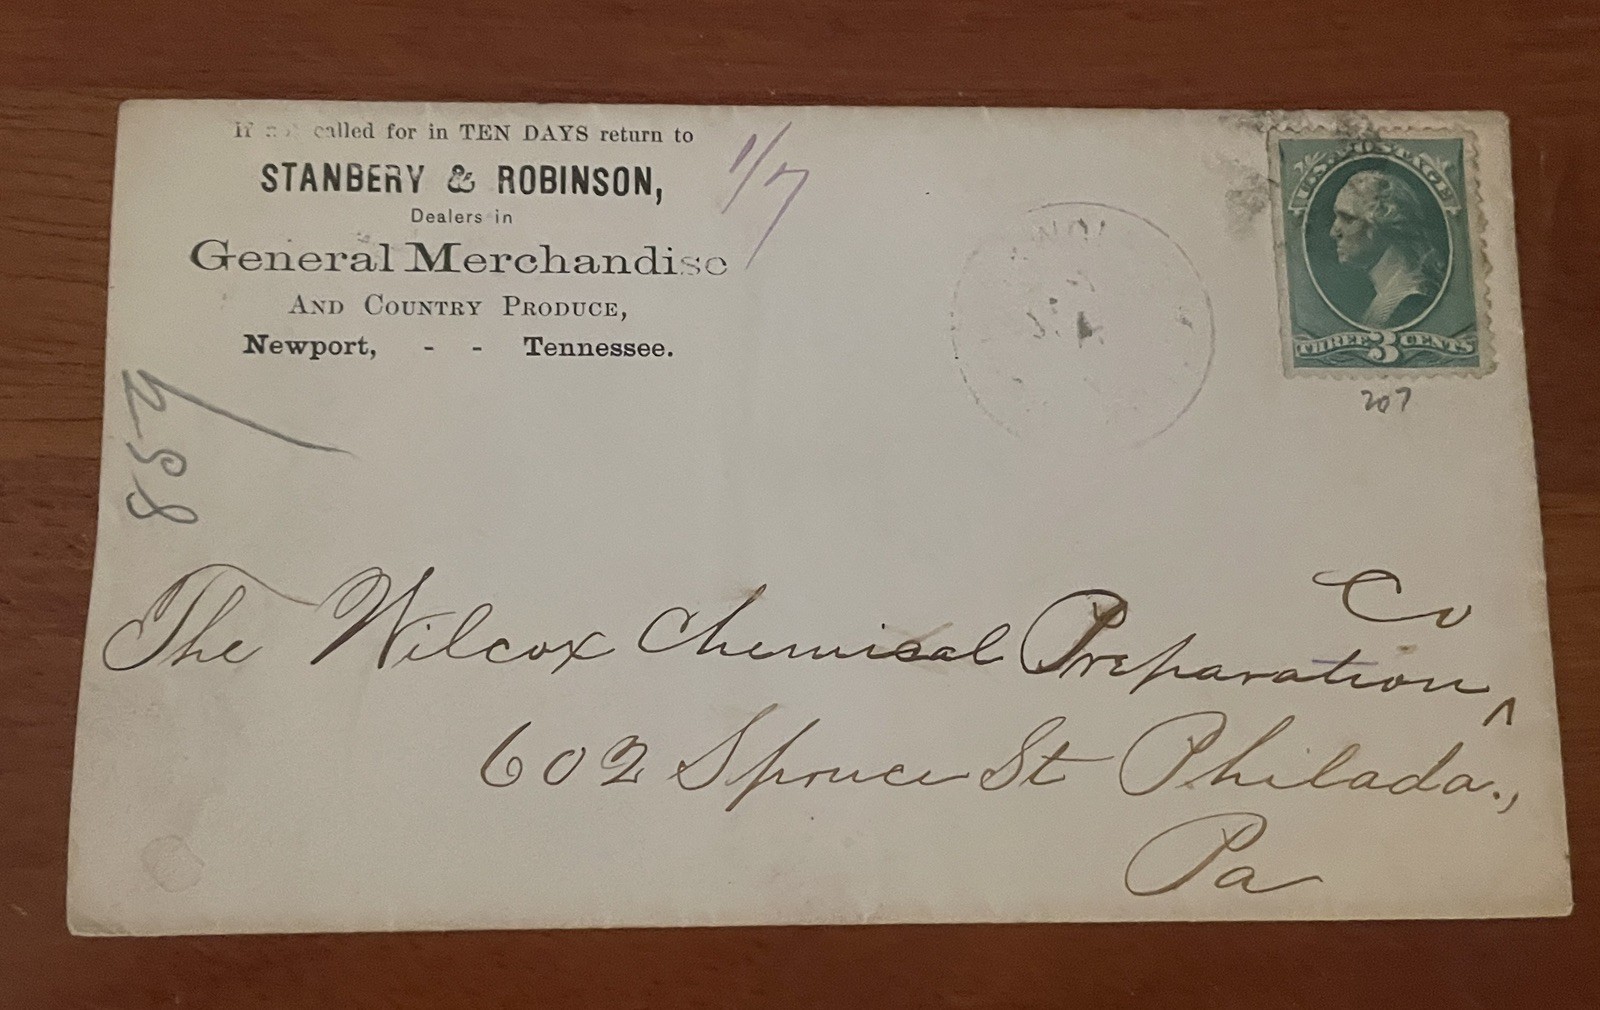 If not called for in TEN DAYS return to
STANBERY & ROBINSON,
Dealers in
General Merchandise
AND COUNTRY PRODUCE,
Newport, - - Tennessee.
1/7
U.S. POSTAGE
THREE 3 CENTS
207
The Wilcox Chemical Preparation ^ Co
602 Spruce St Philada.,
Pa